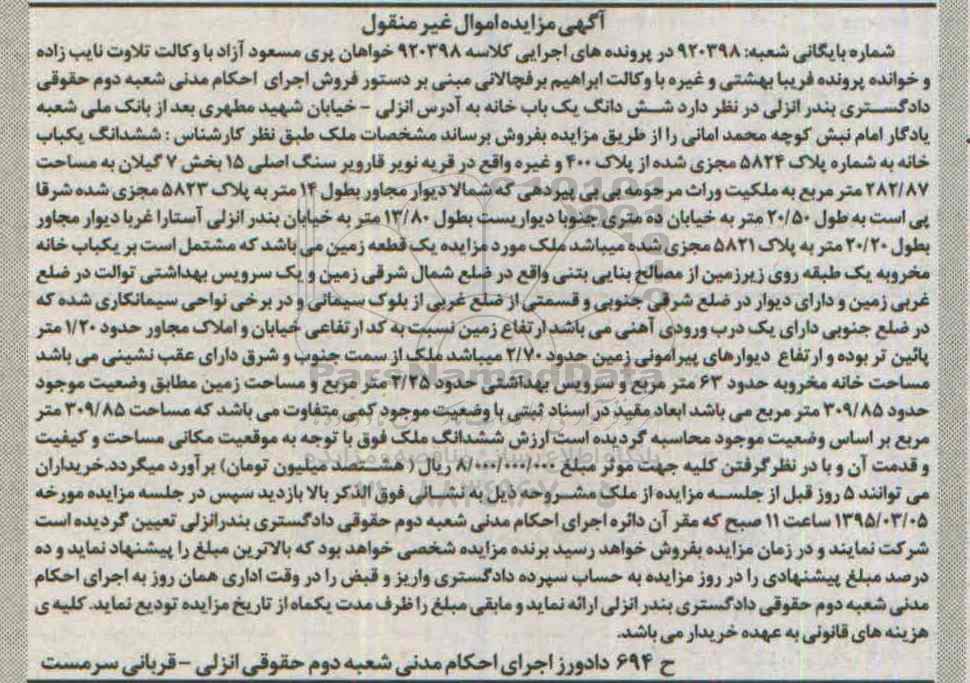 آگهی مزایده اموال غیر منقول
شماره بایگانی شعبه: ۹۲۰۳۹۸ در پرونده های اجرایی کلاسه ۹۲۰۳۹۸ خواهان پری مسعود آزاد با وکالت تلاوت نایب زاده
و خوانده پرونده فریبا بهشتی و غیره با وکالت ابراهیم برفچالانی مبنی بر دستور فروش اجرای احکام مدنی شعبه دوم حقوقی
دادگستری بندر انزلی در نظر دارد شش دانگ یک باب خانه به آدرس انزلی – خیابان شهید مطهری بعد از بانک ملی شعبه
یادگار امام نبش کوچه محمد امانی را از طریق مزایده بفروش برساند مشخصات ملک طبق نظر کارشناس : ششدانگ یکباب
خانه به شماره پلاک ۵۸۲۴ مجزی شده از پلاک ۴۰۰ و غیره واقع در قریه نویر قارویر سنگ اصلی ۱۵ بخش ۷ گیلان به مساحت
۲۸۲/۸۷ متر مربع به ملکیت وراث مرحومه بی بی پیردهی که شمالا دیوار مجاور بطول ۱۴ متر به پلاک ۵۸۲۳ مجزی شده شرقا
پی است به طول ۲۰/۵۰ متر به خیابان ده متری جنوبا دیواریست بطول ۱۳/۸۰ متر به خیابان بندر انزلی آستارا غربا دیوار مجاور
بطول ۲۰/۲۰ متر به پلاک ۵۸۲۱ مجزی شده میباشد ملک مورد مزایده یک قطعه زمین می باشد که مشتمل است بر یکباب خانه
مخروبه یک طبقه روی زیرزمین از مصالح بنایی بتنی واقع در ضلع شمال شرقی زمین و یک سرویس بهداشتی توالت در ضلع
غربی زمین و دارای دیوار در ضلع شرقی جنوبی و قسمتی از ضلع غربی از بلوک سیمانی و در برخی نواحی سیمانکاری شده که
در ضلع جنوبی دارای یک درب ورودی آهنی می باشد ارتفاع زمین نسبت به کد ارتفاعی خیابان و املاک مجاور حدود ۱/۲۰ متر
پائین تر بوده و ارتفاع دیوارهای پیرامونی زمین حدود ۲/۷۰ میباشد ملک از سمت جنوب و شرق دارای عقب نشینی می باشد
مساحت خانه مخروبه حدود ۶۳ متر مربع و سرویس بهداشتی حدود ۴/۲۵ متر مربع و مساحت زمین مطابق وضعیت موجود
حدود ۳۰۹/۸۵ متر مربع می باشد ابعاد مقید در اسناد ثبتی با وضعیت موجود کمی متفاوت می باشد که مساحت ۳۰۹/۸۵ متر
مربع بر اساس وضعیت موجود محاسبه گردیده است ارزش ششدانگ ملک فوق با توجه به موقعیت مکانی مساحت و کیفیت
و قدمت آن و با در نظر گرفتن کلیه جهت موثر مبلغ ۸/۰۰۰/۰۰۰/۰۰۰ ریال ( هشتصد میلیون تومان) برآورد میگردد.خریداران
می توانند ۵ روز قبل از جلسه مزایده از ملک مشروحه ذیل به نشانی فوق الذکر بالا بازدید سپس در جلسه مزایده مورخه
۱۳۹۵/۰۳/۰۵ ساعت ۱۱ صبح که مقر آن دائره اجرای احکام مدنی شعبه دوم حقوقی دادگستری بندرانزلی تعیین گردیده است
شرکت نمایند و در زمان مزایده بفروش خواهد رسید برنده مزایده شخصی خواهد بود که بالاترین مبلغ را پیشنهاد نماید و ده
درصد مبلغ پیشنهادی را در روز مزایده به حساب سپرده دادگستری واریز و قبض را در وقت اداری همان روز به اجرای احکام
مدنی شعبه دوم حقوقی دادگستری بندر انزلی ارائه نماید و مابقی مبلغ را ظرف مدت یکماه از تاریخ مزایده تودیع نماید. کلیه ی
هزینه های قانونی به عهده خریدار می باشد.
ح ۶۹۴ دادورز اجرای احکام مدنی شعبه دوم حقوقی انزلی – قربانی سرمست
ParsNamadData